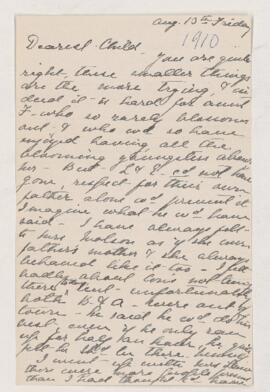 Aug. 13th Friday
1910
Dearest Child - You are quite
right, these smaller things
are the more trying, & in
deed it is hard for Aunt
F - who so rarely blossoms
out & who wd so have
enjoyed having all the
blooming youngsters about
her - But L & E cd not have
gone, respect for their own
father alone wd prevent it
Imagine what he wd have
said - I have always felt
to Mrs as if she were
father's mother & she always
behaved like it too - I feel
badly about Louis not being
there but unfortunately
both B & A - were away
town - he said he wd do his
best even if he only ran
up for half an hour, he
there -
I went up with
there were more people
than I had thought to have